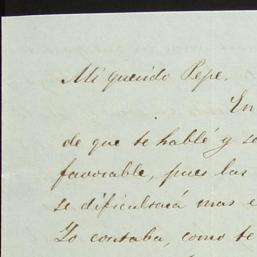 Mi querido Pepe.
En
de que te hablé y se
favorable, pues las
se dificultará mas e
Yo contaba, como te